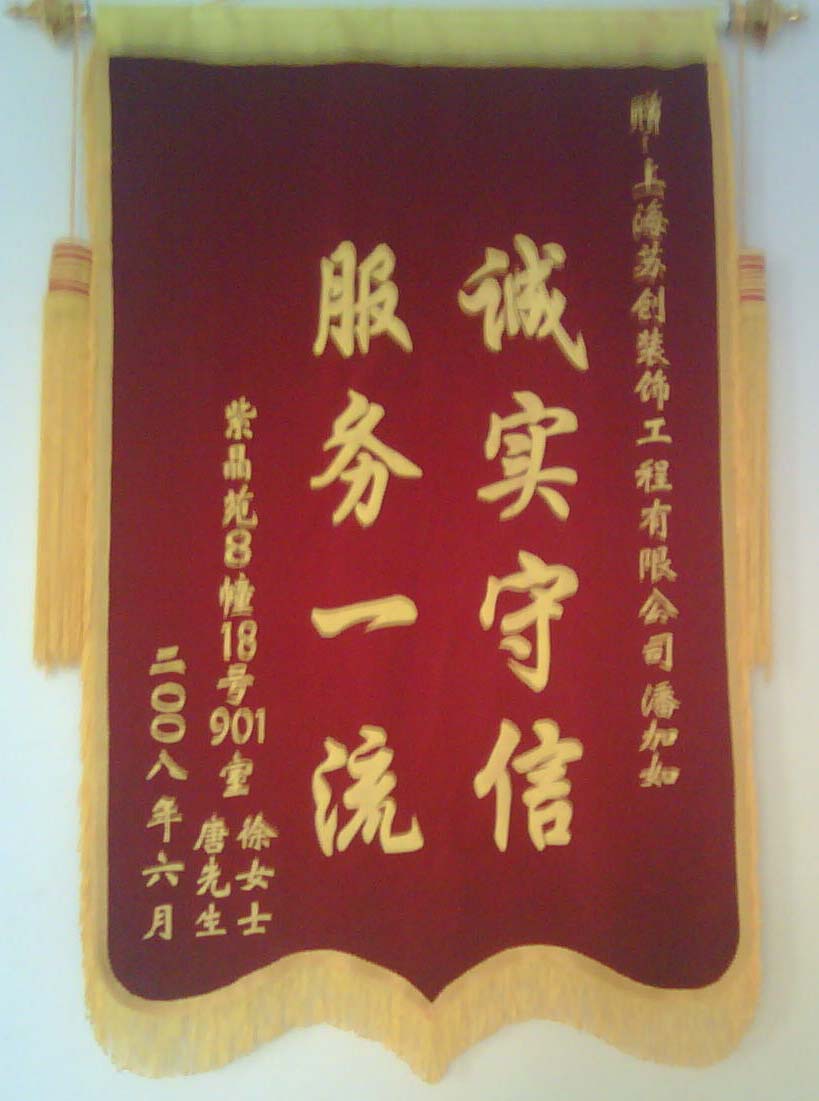 赠：上海苏创装饰工程有限公司潘加如
诚实守信
服务一流
紫晶苑8幢18号901室
徐女士
唐先生
二〇〇八年六月